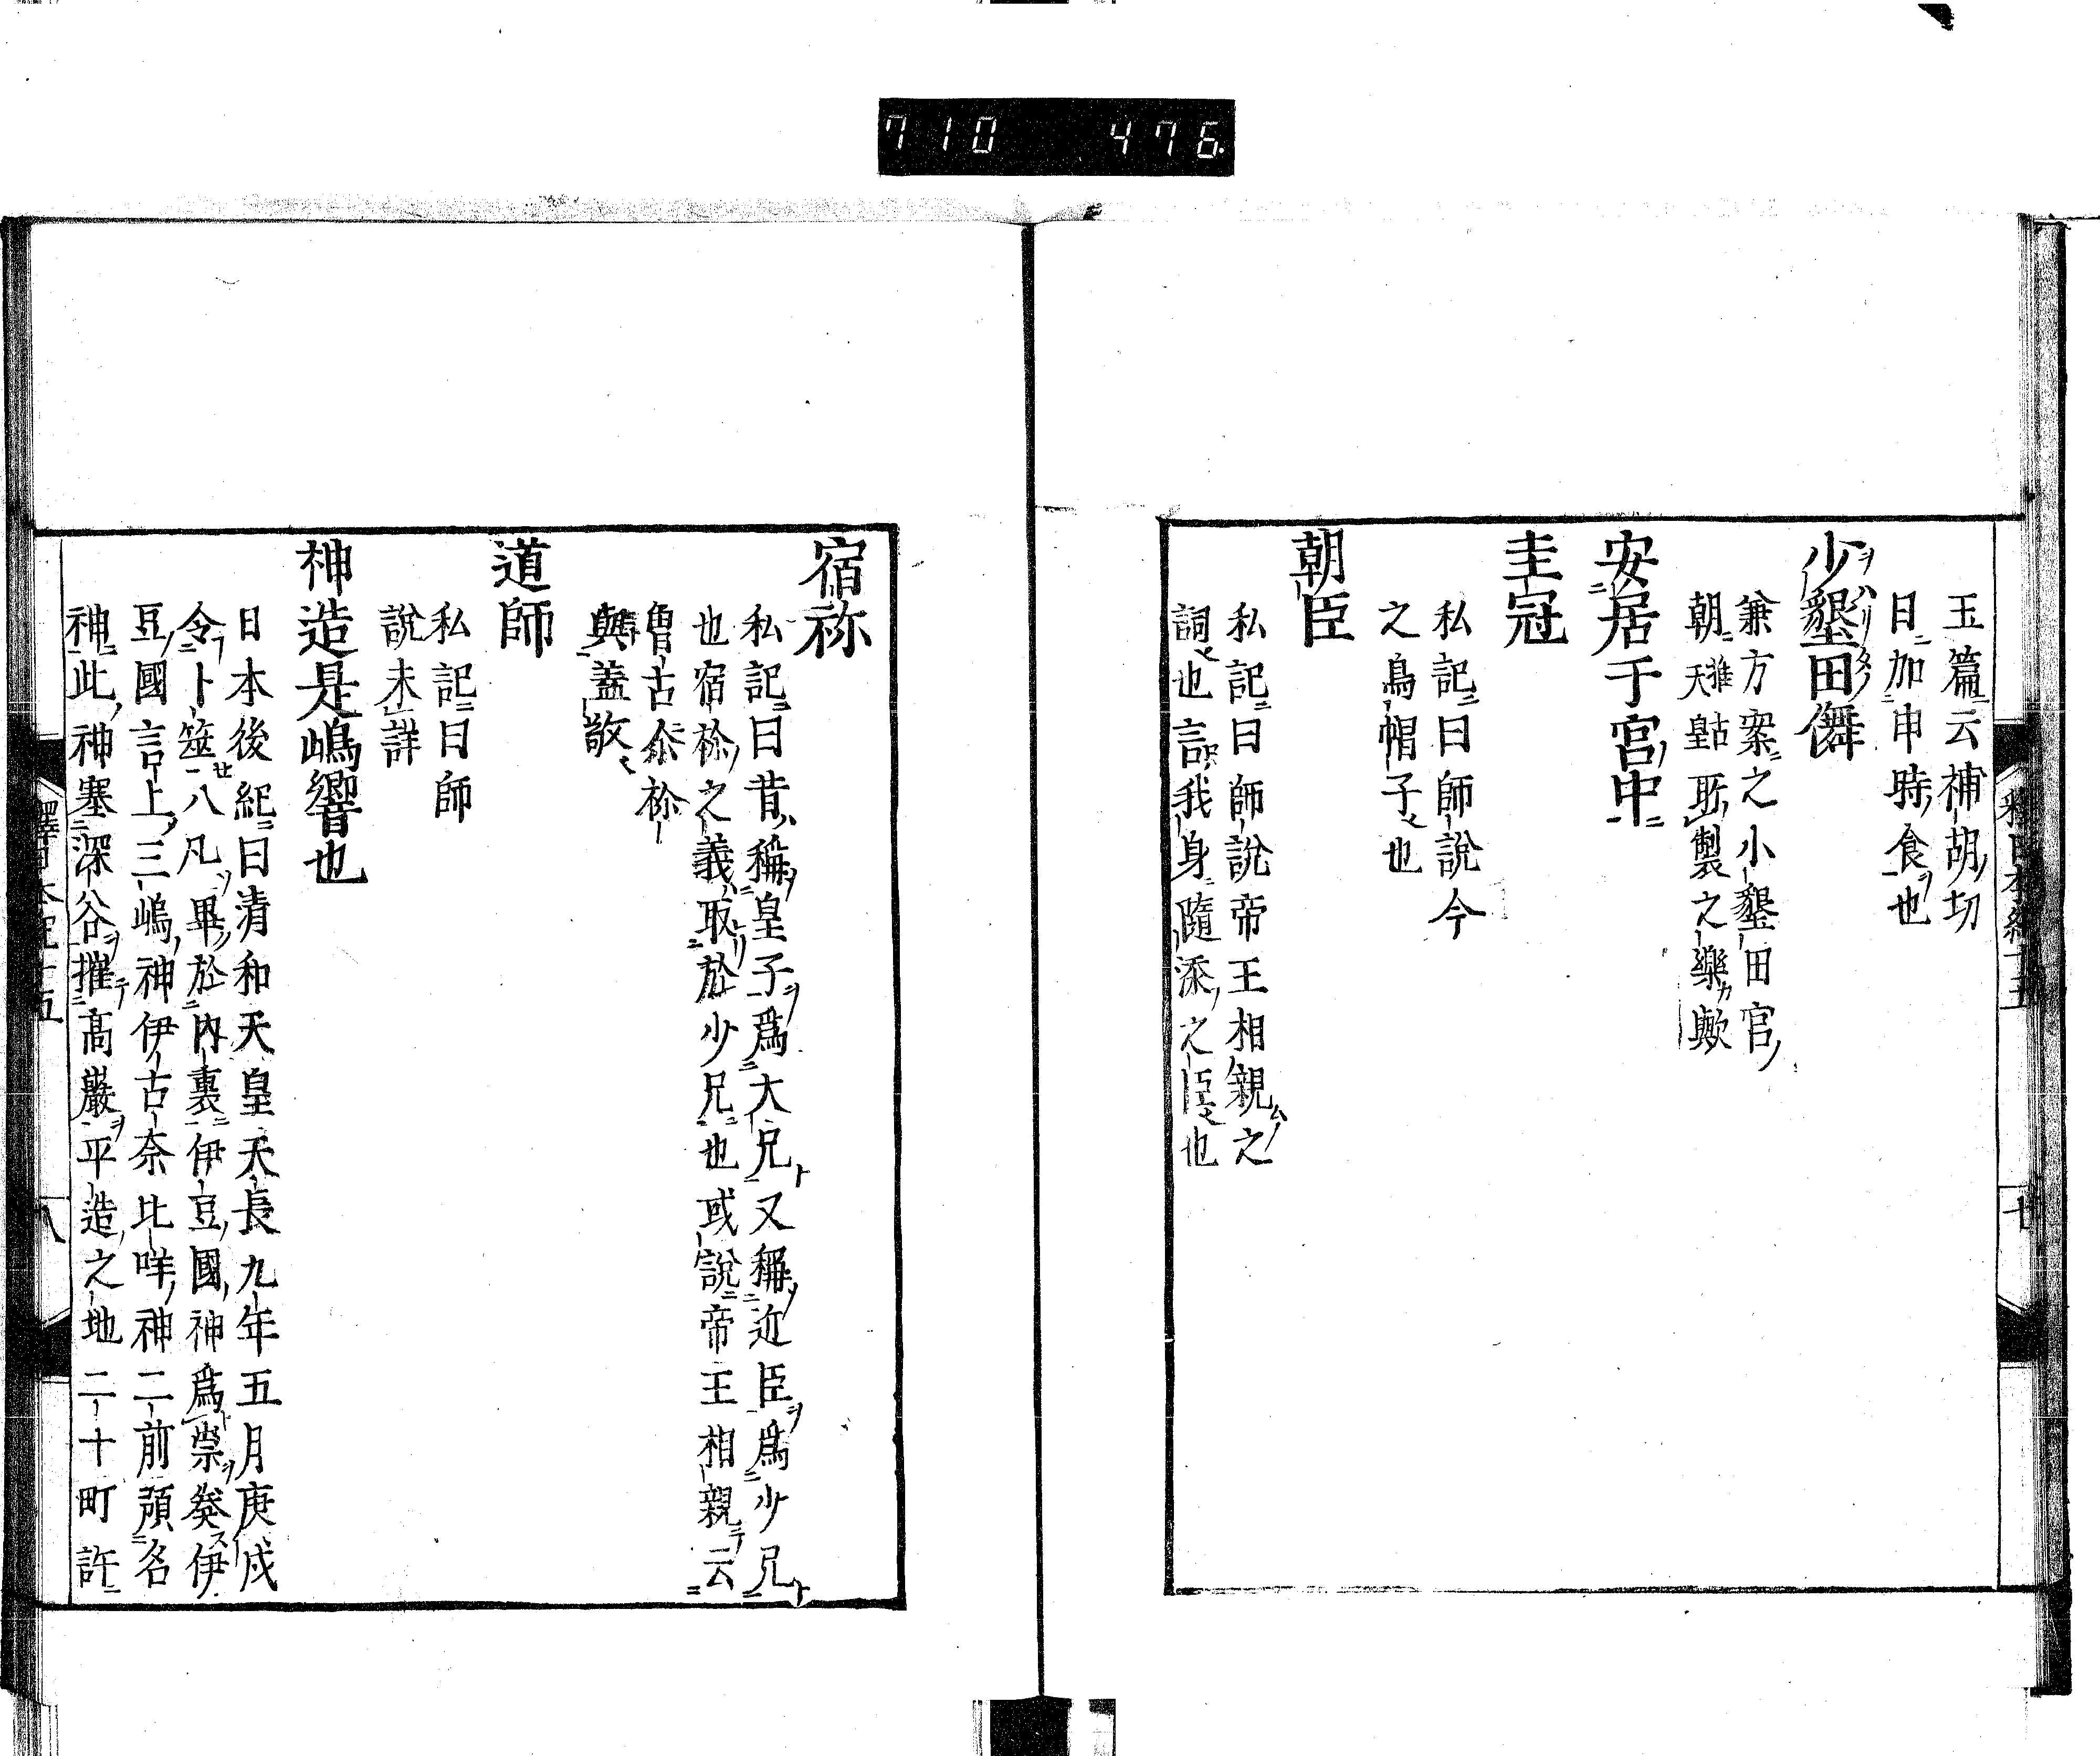 710 476
玉篇云補胡切
日加申時食也
少墾田儛
兼方案之小墾田宮
朝推古天皇所製之樂歟
安居于宮中
圭冠
私記曰師說今
之烏帽子也
朝臣
私記曰師說帝王相親之
詞也言我身隨添之臣也
宿祢
私記曰昔稱皇子爲大兄又稱近臣爲少兄
也宿祢之義取於少兄也或說帝王相親云
曽古尒祢
與蓋敬
道師
私記曰師
說未詳
神造是嶋響也
日本後紀曰清和天皇天長九年五月庚戌
令卜筮八凡畢於內裏伊豆國神爲祟癸伊
豆國言上三嶋神伊古奈比咩神二前預名
神此神塞深谷摧高巖平造之地二十町許
八